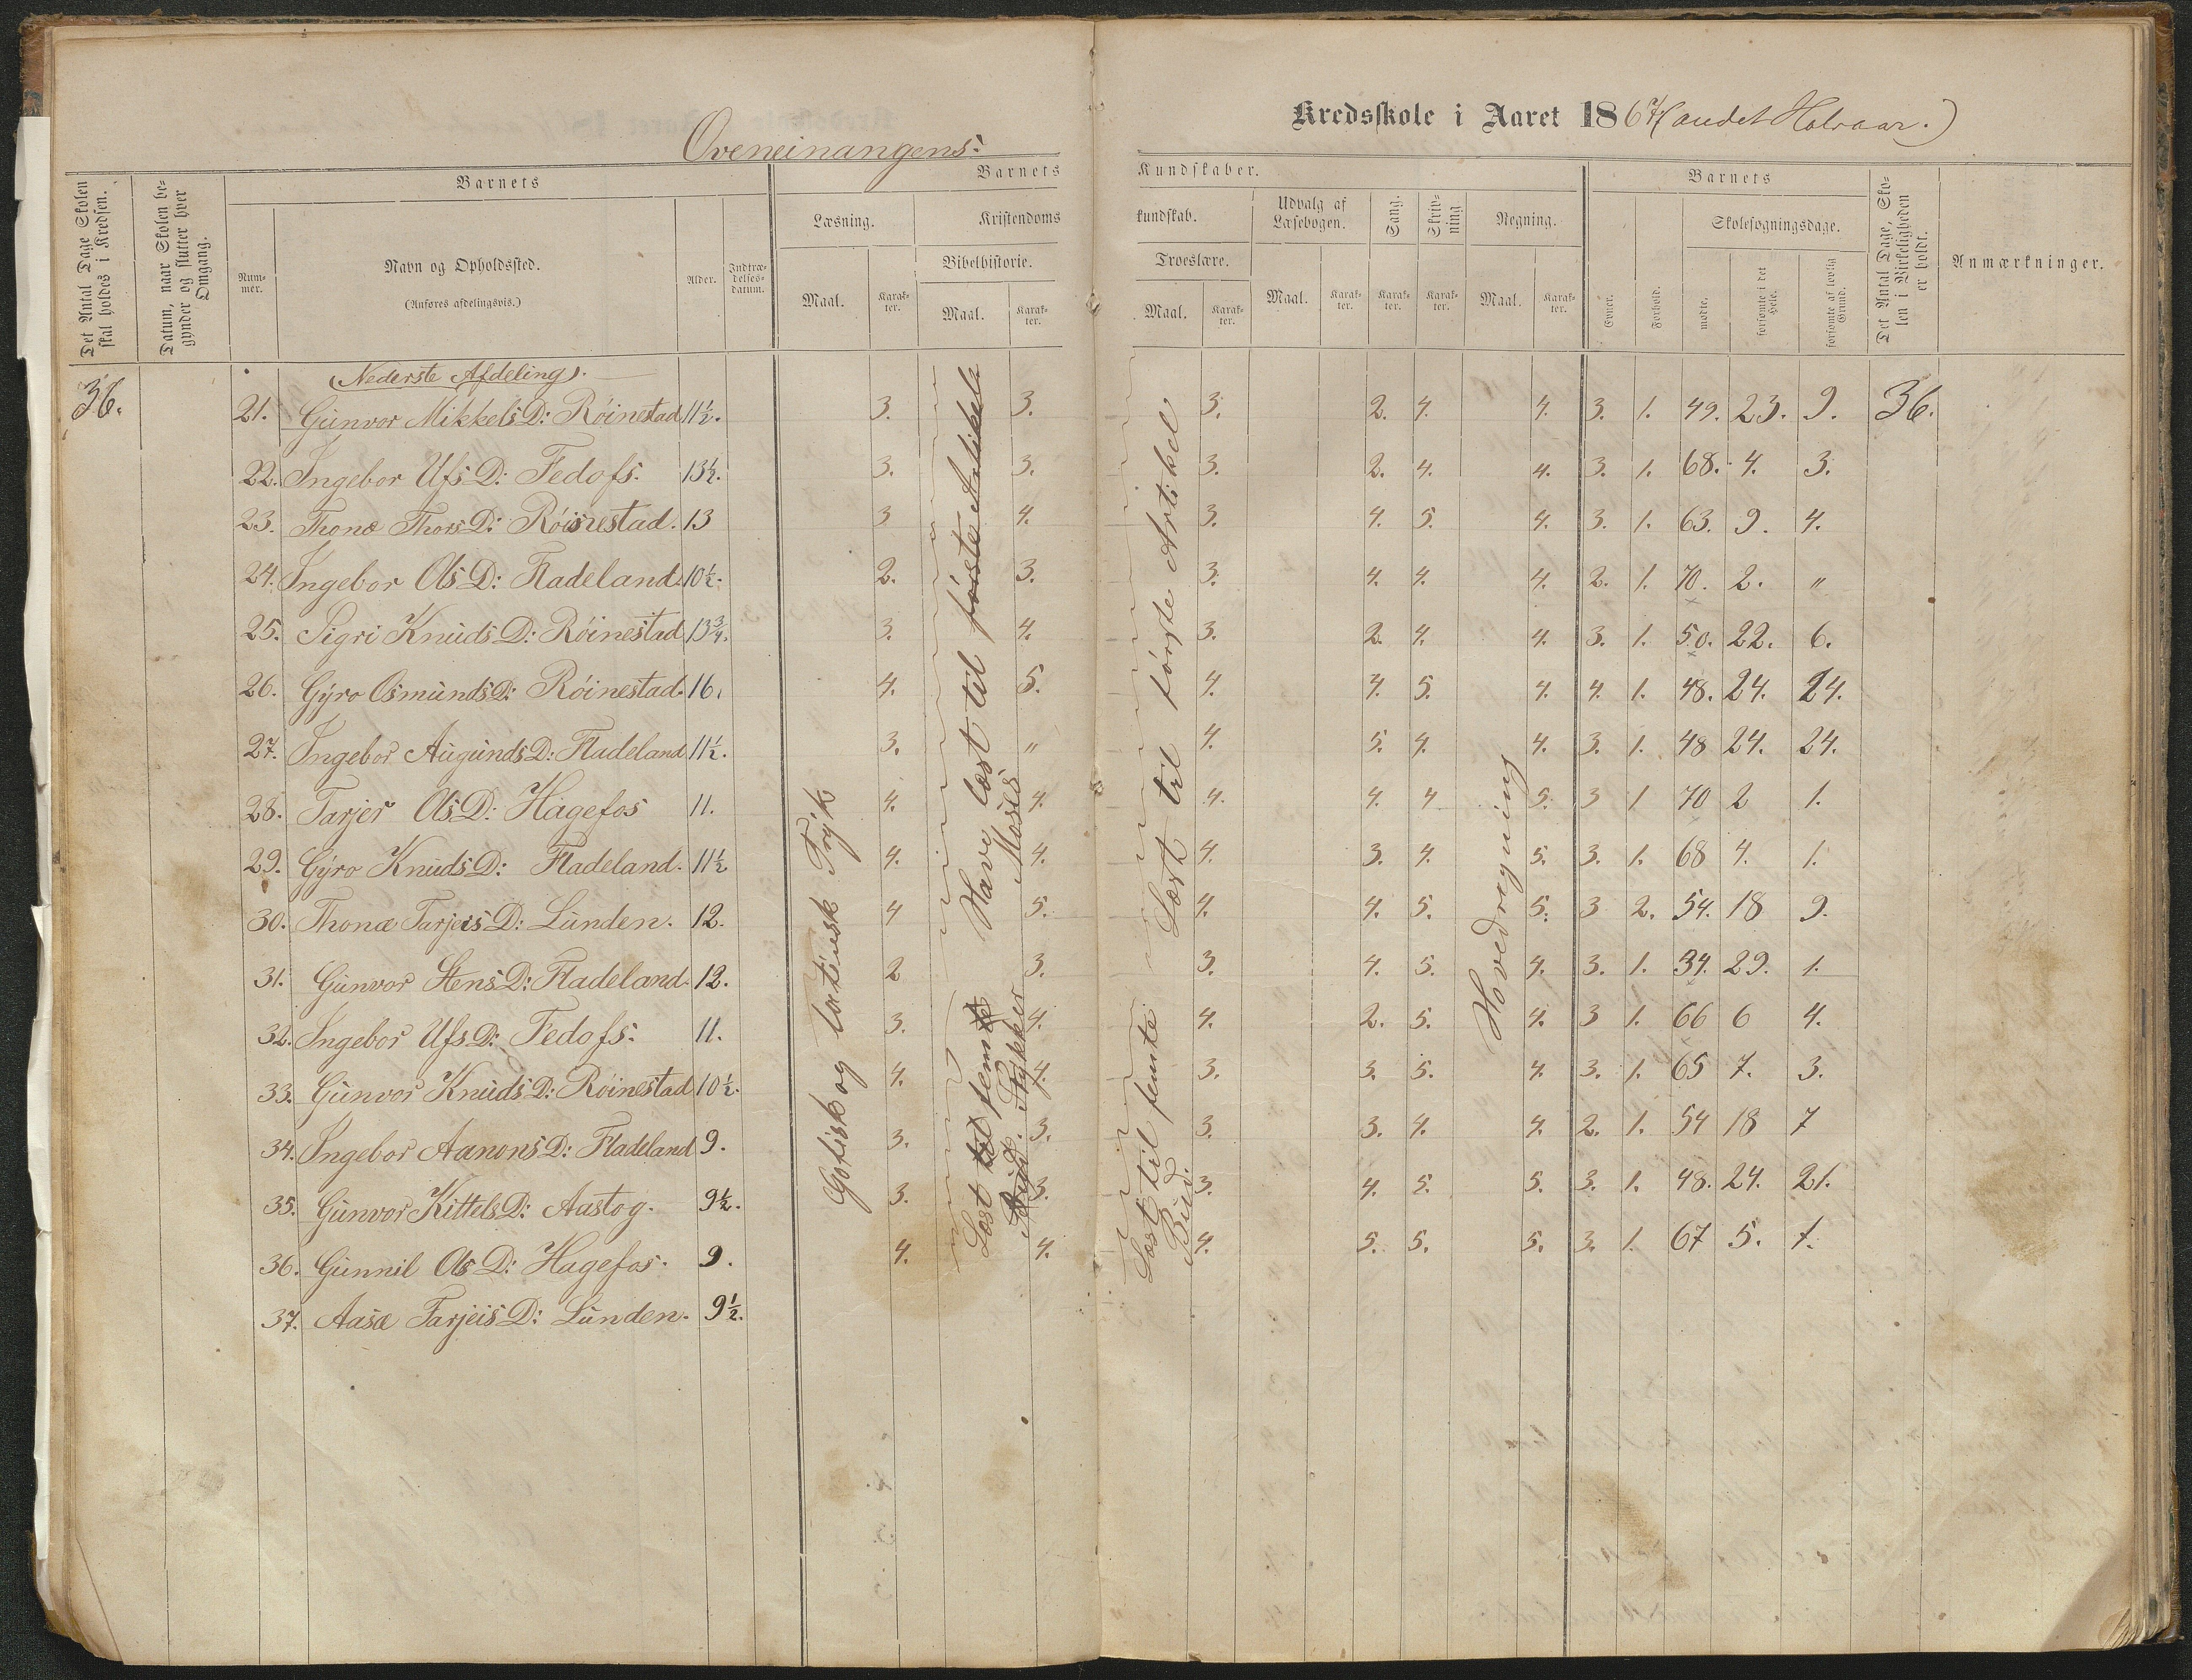 Oveneinangens:
Kredsskole i Aaret 1867 (andet Halvaar.)
Det Antal Dage Skolen skal holdes i Kredsen.
Datum, naar Skolen begynder og slutter hver Omgang.
Barnets
Nummer.
Navn og Opholdssted.
(Anføres afdelingsvis.)
Alder.
Indtrædelsesdatum.
Barnets Kundskaber.
Læsning.
Maal.
Karakter.
Kristendomskundskab.
Bibelhistorie.
Maal.
Karakter.
Troeslære.
Maal.
Karakter.
Udvalg af Læsebogen.
Maal.
Karakter.
Sang.
Karakter.
Skrivning
Karakter.
Regning.
Maal.
Karakter.
Barnets
Evner.
Forhold.
Skolesøgningsdage.
mødte.
forsømte i det Hele.
forsømte af lovlig Grund.
Det Antal Dage, Skolen i Virkeligheden er holdt.
Anmærkninger.
(Nederste Afdeling).
36. 21. Gunvor Mikkels D: Röinestad 11½. 3. 3. 3. 2. 4. 4. 3. 1. 49. 23. 9. 36.
22. Ingebor Ufs D: Fedofs. 13½. 3. 3. 3. 2. 4. 4. 3. 1. 68. 4. 3.
23. Thonæ Thors D: Röisnestad. 13 3 4. 3. 4. 5. 4. 3. 1. 63. 9. 4.
24. Ingebor Ols D: Fladeland. 10½. 2. 3. 3. 4. 4. 4. 2. 1. 70. 2. "
25. Sigri Knuds D: Röinestad 13¾. 3. 4. 3. 2. 4. 4. 3. 1. 50. 22. 6.
26. Gyro Osmunds D: Röinestad. 16. 4. 5. 4. 4. 5. 4. 4. 1. 48. 24. 24.
27. Ingebor Augunds D: Fladeland 11½. 3. " 4. 5. 4. 4. 3. 1. 48 24. 24.
28. Tarjer Ols D: Hagefos 11. 4. 4. 4. 4. 4 5. 3 1 70 2 1.
29. Gyro Knuds D: Fladeland. 11½ 4. 4. 4. 3. 4. 5. 3. 1. 68 4. 1.
30. Thonæ Tarjeis D: Lunden. 12. 4 5. 4. 4. 5. 5. 3 2. 54. 18 9.
31. Gunvor Stens D: Fladeland. 12. 2 3. 3. 4. 5. 4. 3. 1. 34. 29. 1.
32. Ingebor Ufs D: Fedofs. 11. 3. 4. 4. 2. 5. 4. 3 1. 66 6 4.
33. Gunvor Knuds D: Röinestad 10½. 4. 4. 3. 3. 5. 4. 3. 1. 65 7. 3.
34. Ingebor Aanons D: Fladeland 9. 3. 3. 3. 3. 4. 4. 2. 1. 54 18 7
35. Gunvor Kittels D: Aastog. 9½. 3. 3. 3. 4. 5. 5. 3. 1. 48. 24. 21.
36. Gunnil Ols D: Hagefos. 9. 4. 4. 4. 5. 5. 5. 3. 1. 67 5. 1.
37. Aasæ Tarjeis D: Lunden. 9½.
Gotisk og latinsk Tryk
Have læst til første Artikel
Moses
Læst til femte
Stykker
Læst til første Artikel
Læst til femte
Bud.
Hovedregning